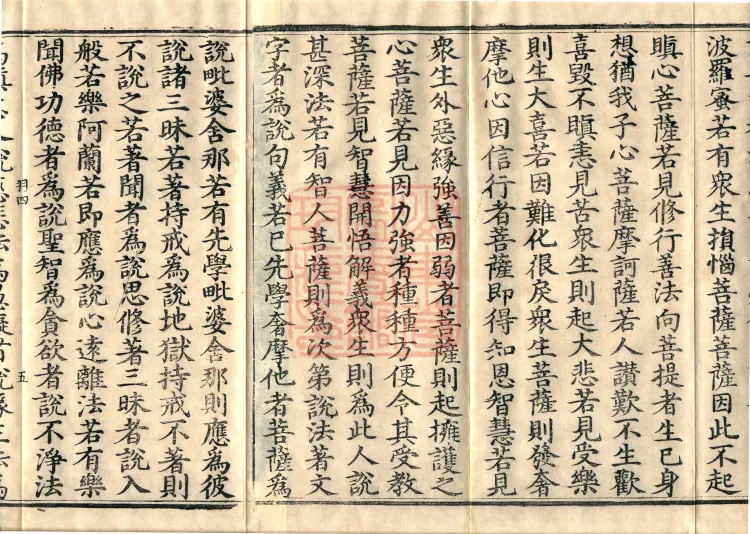 波羅蜜若有衆生損惱菩薩菩薩因此不起
瞋心菩薩若見修行善法向菩提者生已身
想猶我子心菩薩摩訶薩若人讃歎不生歡
喜毀不瞋恚見苦衆生則起大悲若見受樂
則生大喜若因難化很戾衆生菩薩則發奢
摩他心因信行者菩薩即得知恩智慧若見
衆生外惡緣強善因弱者菩薩則起擁護之
心菩薩若見因力強者種種方便令其受教
菩薩若見智慧開悟解義衆生則爲此人說
甚深法若有智人菩薩則爲次第說法著文
字者爲說句義若已先學奢摩他者菩薩爲
說毗婆舍那若有先學毗婆舍那則應爲彼
說諸三昧若著持戒爲說地獄持戒不著則
不說之若著聞者爲說思修著三昧者說入
般若樂阿蘭若即應爲說心遠離法若有樂
聞佛功德者爲說聖智爲貪欲者說不淨法
羽四 五